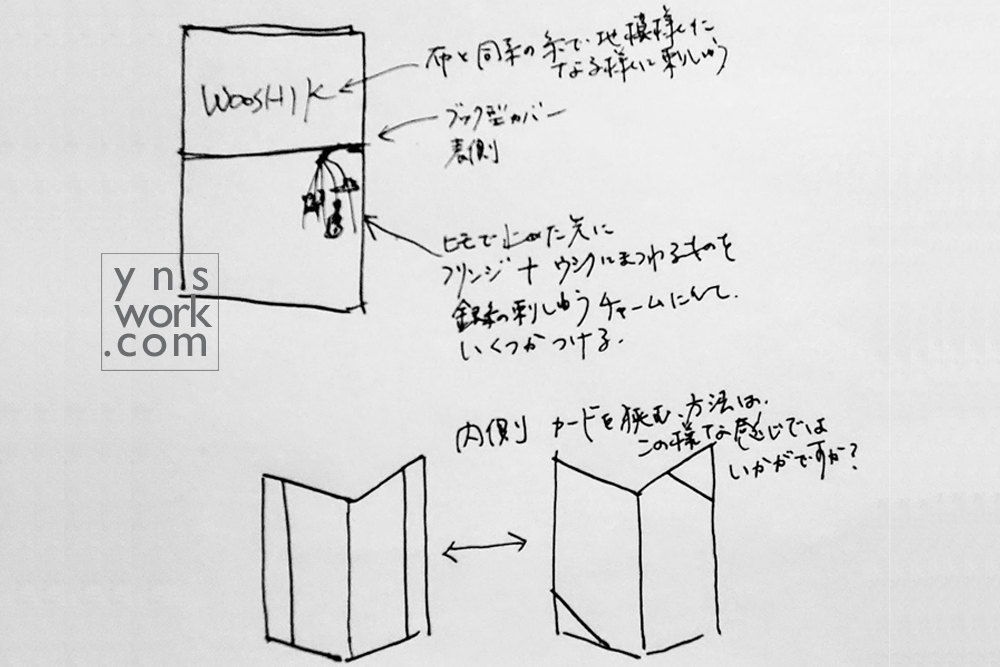 WOOSHIK
布と同系の糸で、地模様に
なる様に刺しゅう
ブック型カバー
表側
ヒモで止めた先に
フリンジ + ウシクにまつわるものを
銀糸の刺しゅうチャームにして、
いくつかつける.
yns
work
.com
内側 カードを挟む、方法は、
この様な感じでは
いかがですか?